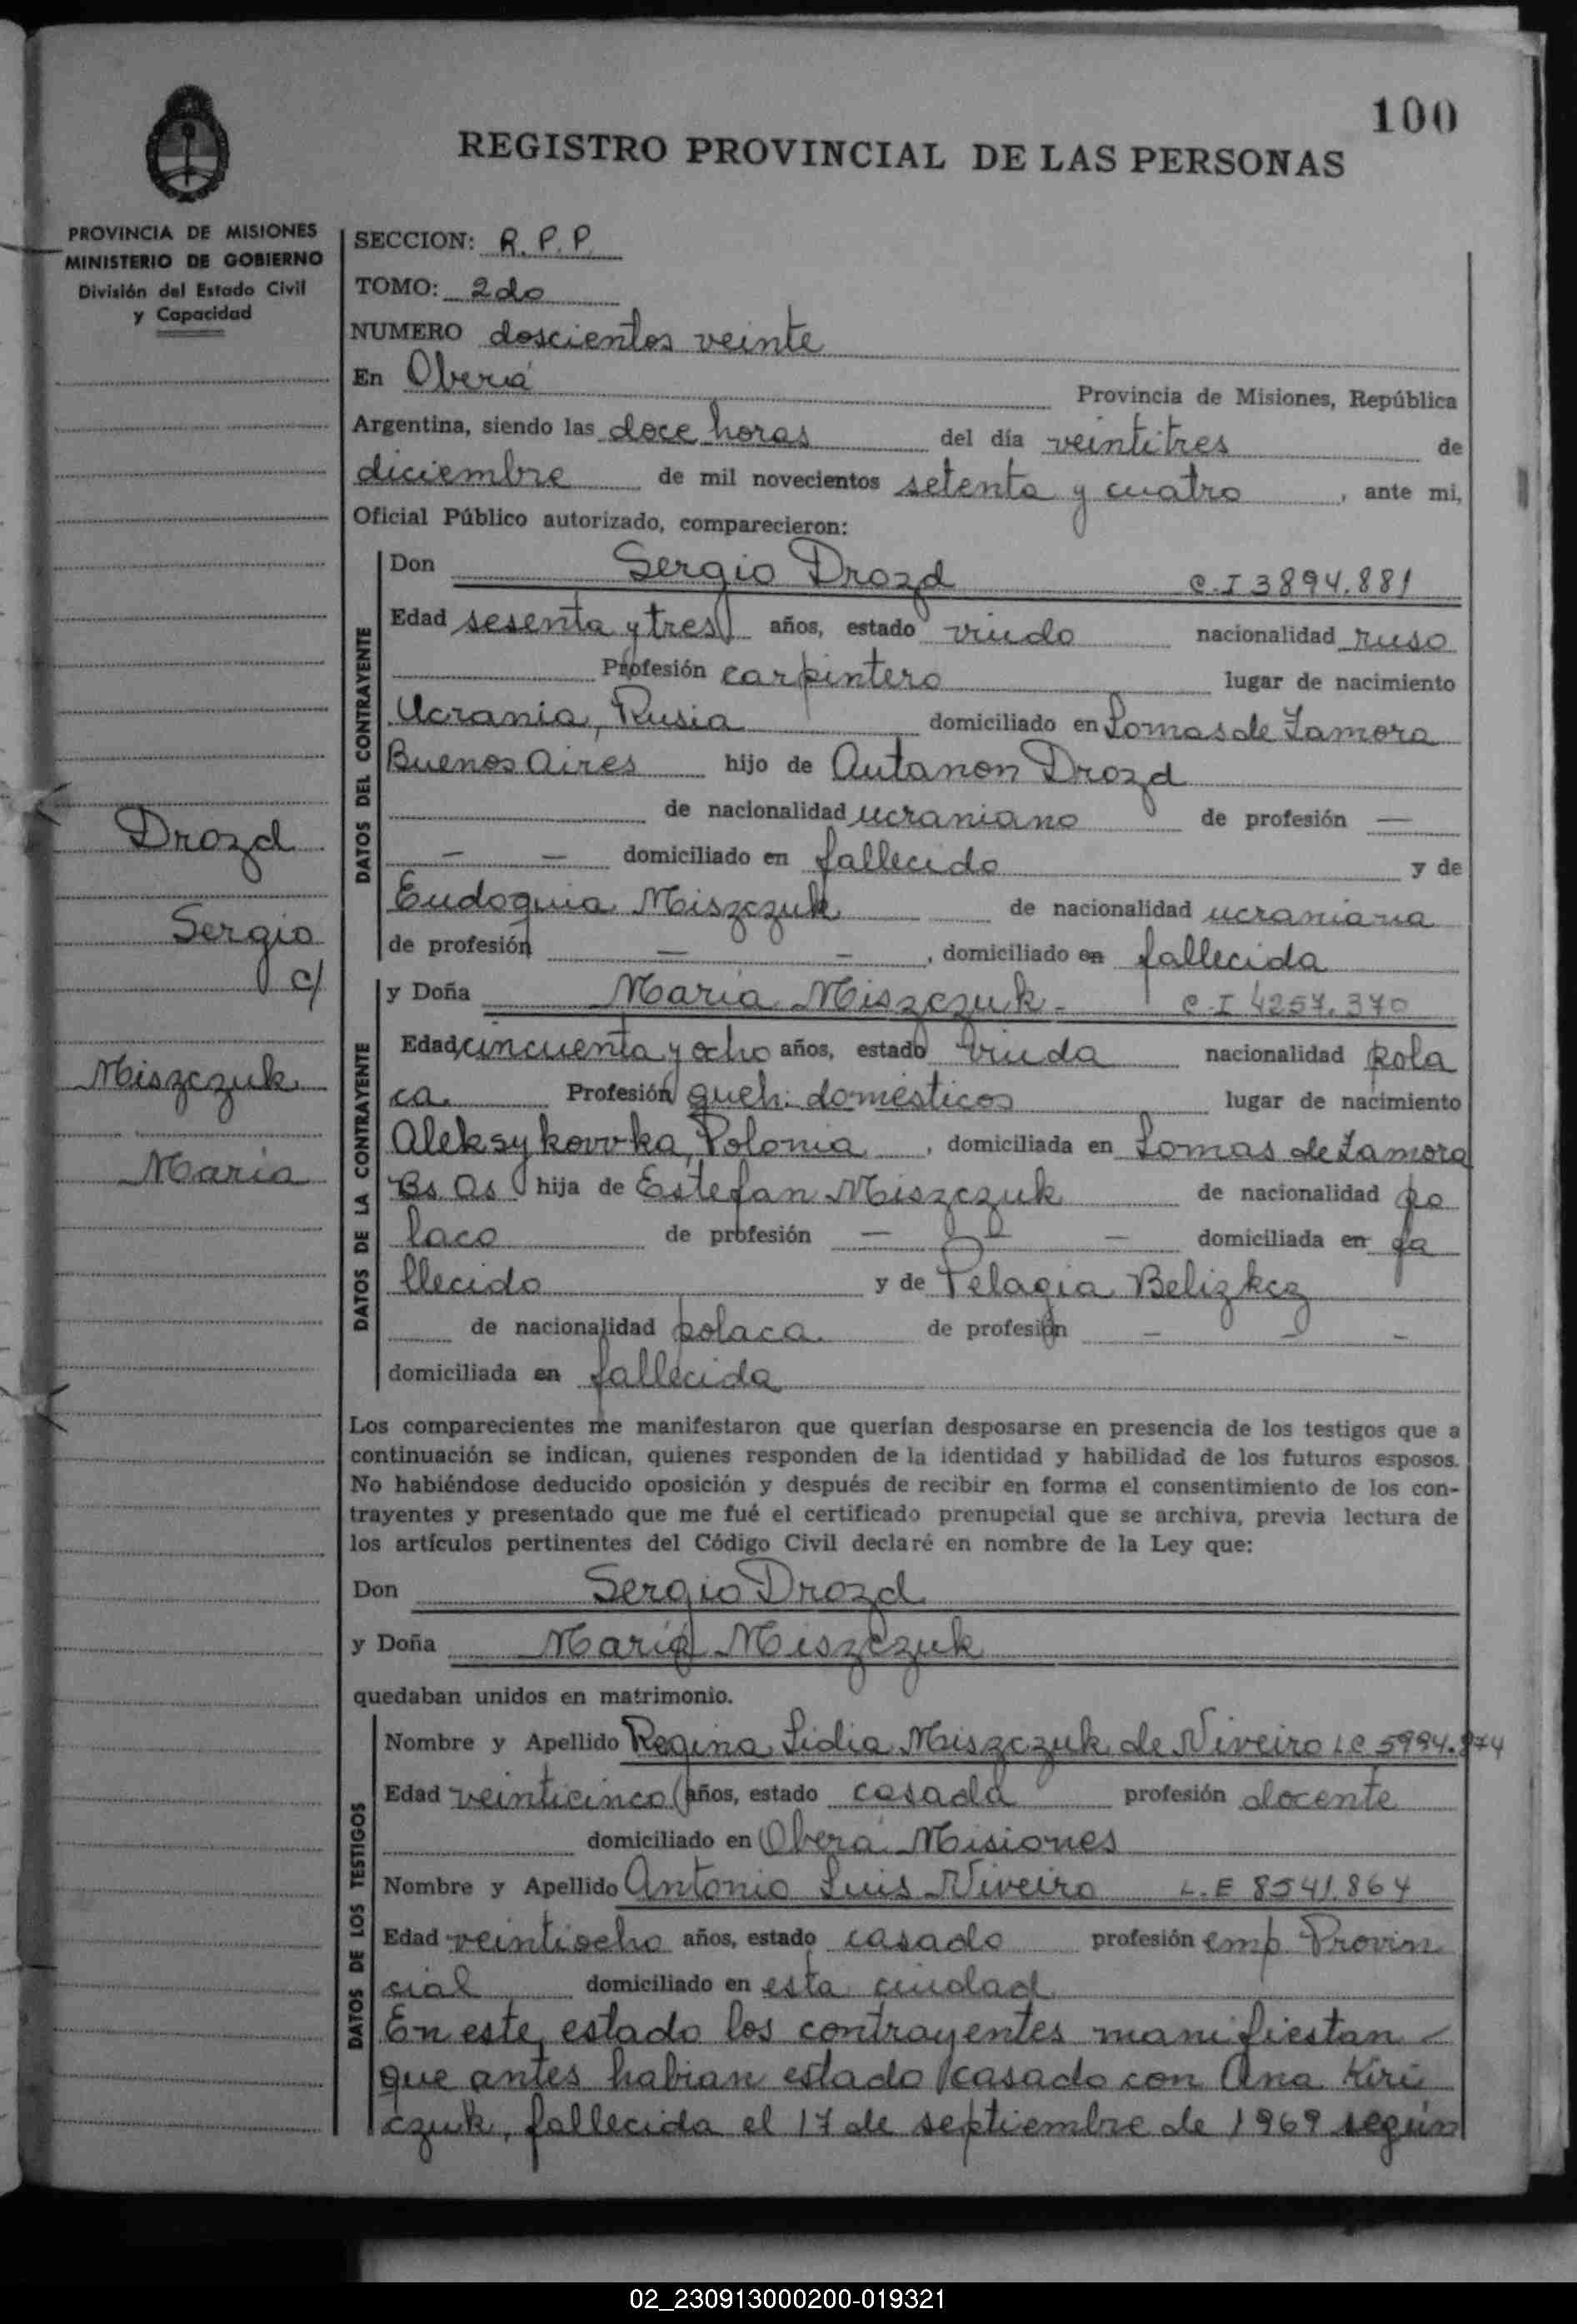 100
REGISTRO PROVINCIAL DE LAS PERSONAS
PROVINCIA DE MISIONES
MINISTERIO DE GOBIERNO
División del Estado Civil
y Capacidad
SECCION: R.P.P.
TOMO: 2do
NUMERO doscientos veinte
En Oberá Provincia de Misiones, República
Argentina, siendo las doce horas del día veintitres de
diciembre de mil novecientos setenta y cuatro, ante mi,
Oficial Público autorizado, comparecieron:
Drozd
Sergio
c/
Miszczuk
María
DATOS DEL CONTRAYENTE
Don Sergio Drozd C.I 3894.881
Edad sesenta y tres años, estado viudo nacionalidad ruso
Profesión carpintero lugar de nacimiento
Ucrania, Rusia domiciliado en Lomas de Zamora
Buenos Aires hijo de Autanon Drozd
de nacionalidad ucraniano de profesión —
— — domiciliado en fallecido y de
Eudoquia Miszczuk de nacionalidad ucraniana
de profesión — —, domiciliado en fallecida
DATOS DE LA CONTRAYENTE
y Doña María Miszczuk - C.I 4257.370
Edad cincuenta y ocho años, estado viuda nacionalidad pola
ca. Profesión queh. domésticos lugar de nacimiento
Aleksykovvka, Polonia, domiciliada en Lomas de Zamora
Bs As hija de Estefan Miszczuk de nacionalidad po
laco de profesión — — domiciliada en fa
llecido y de Pelagia Belizkcz
de nacionalidad polaca. de profesión - - -
domiciliada en fallecida
Los comparecientes me manifestaron que querían desposarse en presencia de los testigos que a
continuación se indican, quienes responden de la identidad y habilidad de los futuros esposos.
No habiéndose deducido oposición y después de recibir en forma el consentimiento de los con-
trayentes y presentado que me fué el certificado prenupcial que se archiva, previa lectura de
los artículos pertinentes del Código Civil declaré en nombre de la Ley que:
Don Sergio Drozd
y Doña María Miszczuk
quedaban unidos en matrimonio.
DATOS DE LOS TESTIGOS
Nombre y Apellido Regina Lidia Miszczuk de Niveiro L.C 5994.874
Edad veinticinco años, estado casada profesión docente
domiciliado en Oberá Misiones
Nombre y Apellido Antonio Luis Niveiro L.E 8541.864
Edad veintiocho años, estado casado profesión emp. Provin
cial domiciliado en esta ciudad
En este estado los contrayentes manifiestan
que antes habian estado casado con Ana Kiri
czuk, fallecida el 17 de septiembre de 1969 según
02_230913000200-019321